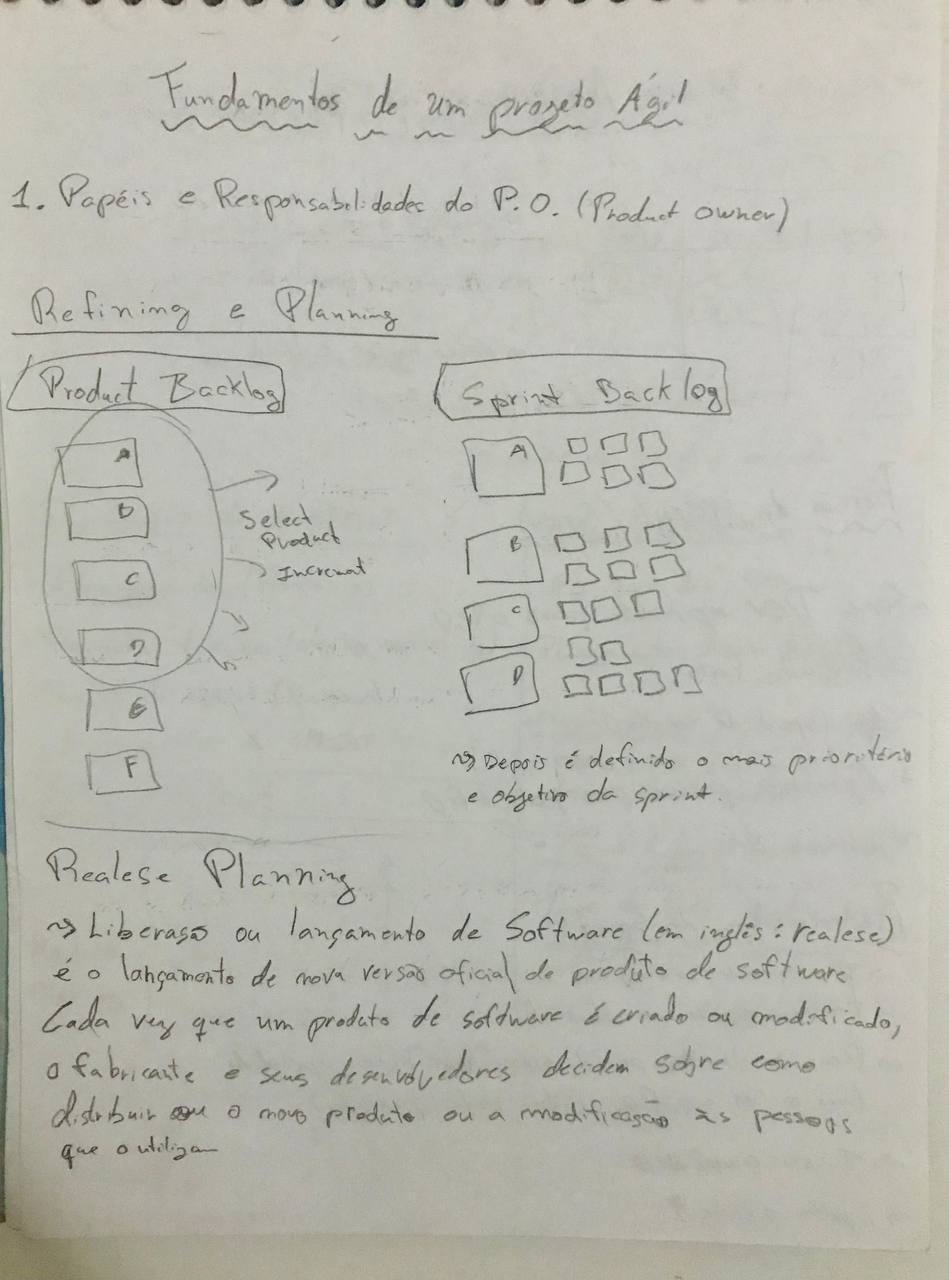 Fundamentos de um projeto Ágil
1. Papéis e Responsabilidades do P.O. (Product owner)
Refining e Planning
Product Backlog
A
B
C
D
E
F
Select
Product
Incremat
Sprint Backlog
A
B
C
D
~> Depois é definido o mais prioritário
e objetivo da sprint.
Realese Planning
~> Liberasão ou lançamento de Software (em inglês: realese)
é o lançamento de nova versão oficial de produto de software
Cada vez que um produto de software é criado ou modificado,
o fabricante e seus desenvolvedores decidem sobre como
distribuir o novo produto ou a modificação às pessoas
que o utilizam